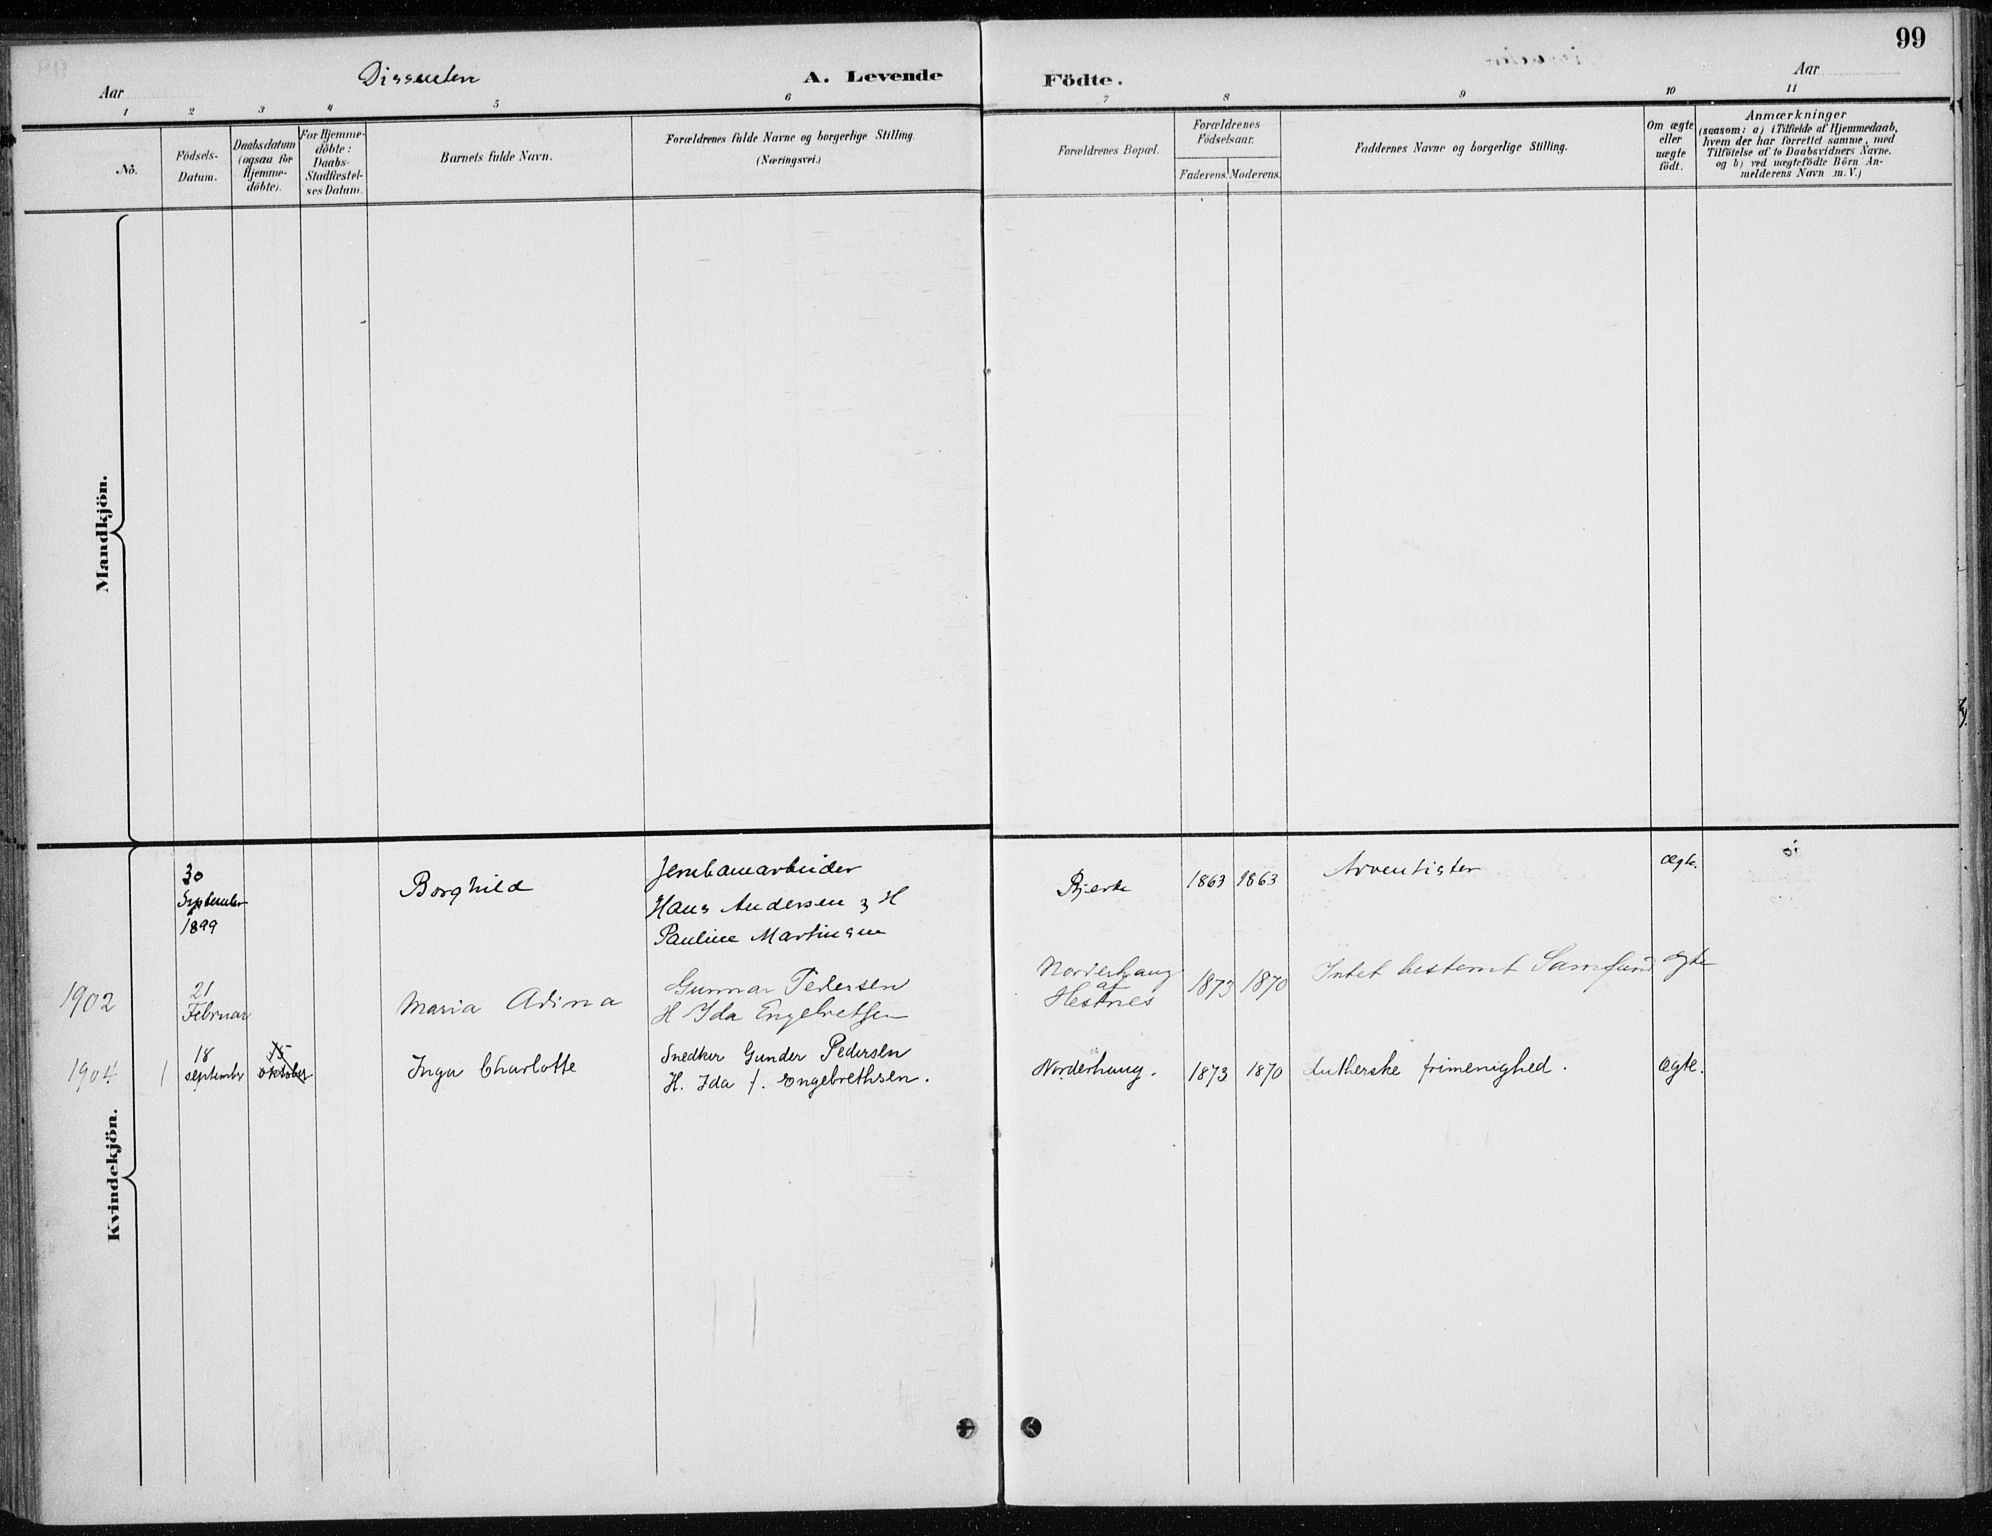 99
Dissenter
A. Levende Födte.
Aar
Aar
1 2 3 4 5 6 7 8 9 10 11
No.
Födsels-
Datum.
Daabsdatum
(ogsaa for
Hjemme-
döbte).
For Hjemme-
döbte:
Daabs-
Stadfæstel-
ses Datum.
Barnets fulde Navn.
Forældrenes fulde Navne og borgerlige Stilling.
(Næringsvei.)
Forældrenes Bopæl.
Forældrenes
Födselsaar.
Faderens. Moderens.
Faddernes Navne og borgerlige Stilling.
Om ægte
eller
uægte
födt.
Anmærkninger
(saasom: a) i Tilfælde af Hjemmedaab,
hvem der har forrettet samme, med
Tilföielse af to Daabsvidners Navne.
og b) ved uægtefödte Börn An-
melderens Navn m. V.)
Mandkjön.
Kvindekjön.
30
September
1899
Borghild
Jernbanearbeider
Hans Andersen & H
Pauline Martinsen
Bjerke
1863 1863
Adventister
Ægte.
1902
21
Februar
Maria Adina
Gunnar Pedersen
H Ida Engebretsen
Norderhaug
af
Hestnes
1873 1870
Intet bestemt Samfund
ægte
1904
1
18
september
15
oktober
Inga Charlotte
Snedker Gunder Pedersen
H. Ida f. Engebrethsen.
Norderhaug.
1873 1870
Lutherske frimenighed.
Ægte.